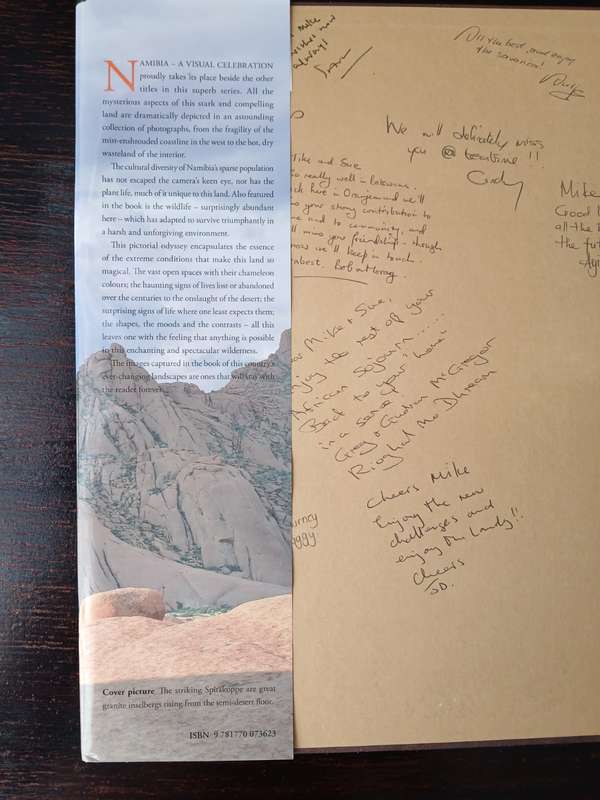 NAMIBIA – A VISUAL CELEBRATION
proudly takes its place beside the other
titles in this superb series. All the
mysterious aspects of this stark and compelling
land are dramatically depicted in an astounding
collection of photographs, from the fragility of the
mist-enshrouded coastline in the west to the hot, dry
wasteland of the interior.
The cultural diversity of Namibia's sparse population
has not escaped the camera's keen eye, nor has the
plant life, much of it unique to this land. Also featured
in the book is the wildlife – surprisingly abundant
here – which has adapted to survive triumphantly in
a harsh and unforgiving environment.
This pictorial odyssey encapsulates the essence
of the extreme conditions that make this land so
magical. The vast open spaces with their chameleon
colours; the haunting signs of lives lost or abandoned
over the centuries to the onslaught of the desert; the
surprising signs of life where one least expects them;
the shapes, the moods and the contrasts – all this
leaves one with the feeling that anything is possible
in this enchanting and spectacular wilderness.
The images captured in the book of this country's
ever-changing landscapes are ones that will stay with
the reader forever.
Cover picture The striking Spitzkoppe are great
granite inselbergs rising from the semi-desert floor.
ISBN 9 781770 073623
Mike
now
always!
All the best, and enjoy
the
We will definately miss
you @ teatime !!
Mike and Sue
really well -
here in Oranjemund we'll
your strong contribution to
and to community, and
miss your friendship - though
know we'll keep in touch.
Mike
Good
all the
the fut
Mike & Sue,
Enjoy the rest of your
African Sojourn......
Back to your "home"
in a sense!
Greg & Gillian McGregor
Rioghal Mo Dhream
Cheers Mike
enjoy the new
challenges and
enjoy the Landy!!.
Cheers
JD.
urney
ggy.